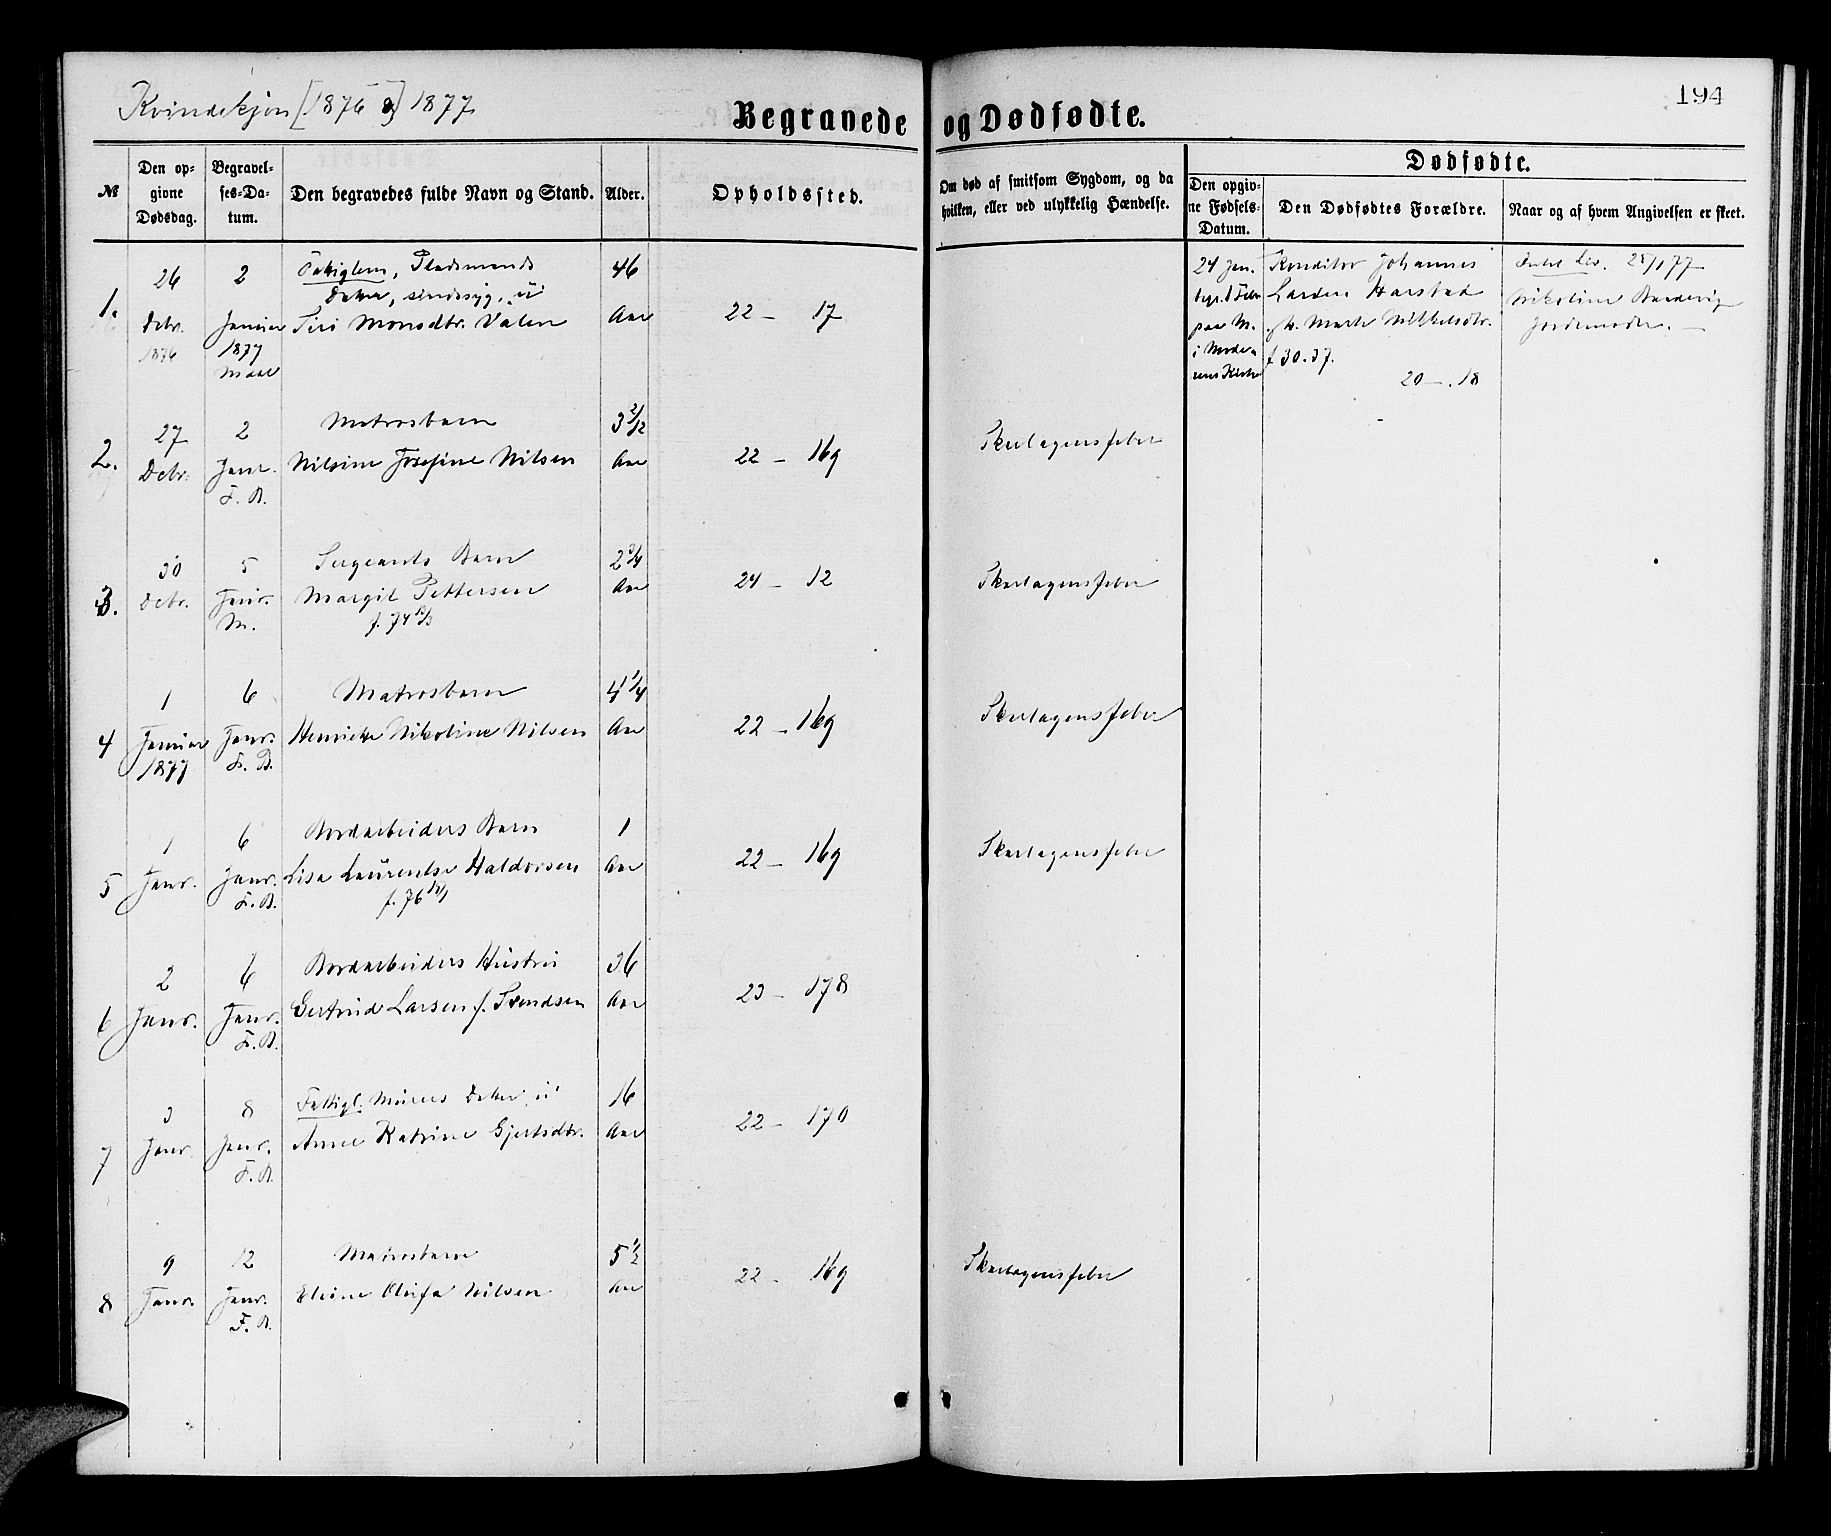 Kvindekjøn [1876 og] 1877
Begravede og Dødfødte.
194
№
Den op-
givne
Dødsdag.
Begravel-
ses-Da-
tum.
Den begravedes fulde Navn og Stand.
Alder.
Opholdssted.
Om død af smitsom Sygdom, og da
hvilken, eller ved ulykkelig Hændelse.
Dødfødte.
Den opgiv-
ne Fødsels-
Datum.
Den Dødfødtes Forældre.
Naar og af hvem Angivelsen er skeet.
1.
26
Debr.
1876
2
Januar
1877
Fatiglem, Pladsmands
Datter, sindssyg, u
Siri Monsdtr. Valen
46
Aar
22 - 17
24 Jan.
Konditor Johannes
Larsen Harstad
og H. Marte Mikkelsdtr.
f 30.37.
20 - 18
Lev. 25/1 77
Nikoline
Jordemoder.
2.
27
Debr.
2
Janr.
F. B.
Matrosbarn
Nilsine Josefine Nilsen
3 2/12
Aar
22 - 169
Skarlagensfeber
3.
30
Debr.
5
Janr.
M.
Sergeants Barn
Margit Pettersen
2 3/4
Aar
24 - 12
Skarlagensfeber
4
1
Januar
1877
6
Janr.
F. B.
Matrosbarn
Henrikke Nikoline Nilsen
4 1/4
Aar
22 - 169
Skarlagensfeber
5
1
Janr.
6
Janr.
F. B.
Bordarbeiders Barn
Lisa Laurentse Haldorsen
1
Aar
22 - 169
Skarlagensfeber
6
2
Janr.
6
Janr.
F. B.
Bordarbeiders Hustru
Gertrud Larsen f. Svendsen
36
Aar
23 - 178
7
3
Janr.
8
Janr.
F. B.
Fattigl. Murers Datter u
Anne Katrine Gjertsdtr.
16
Aar
22 - 170
8
9
Janr.
12
Janr.
F. B.
Matrosbarn
Elvine Olufa Nilsen
5 1/2
Aar
22 - 169
Skarlagensfeber